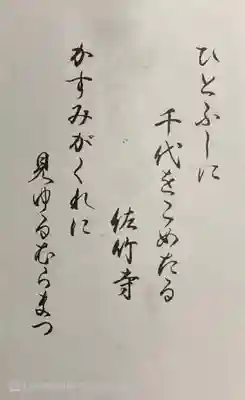 ひとふしに
千代をこめたる
佐竹寺
かすみがくれに
見ゆるむらまつ